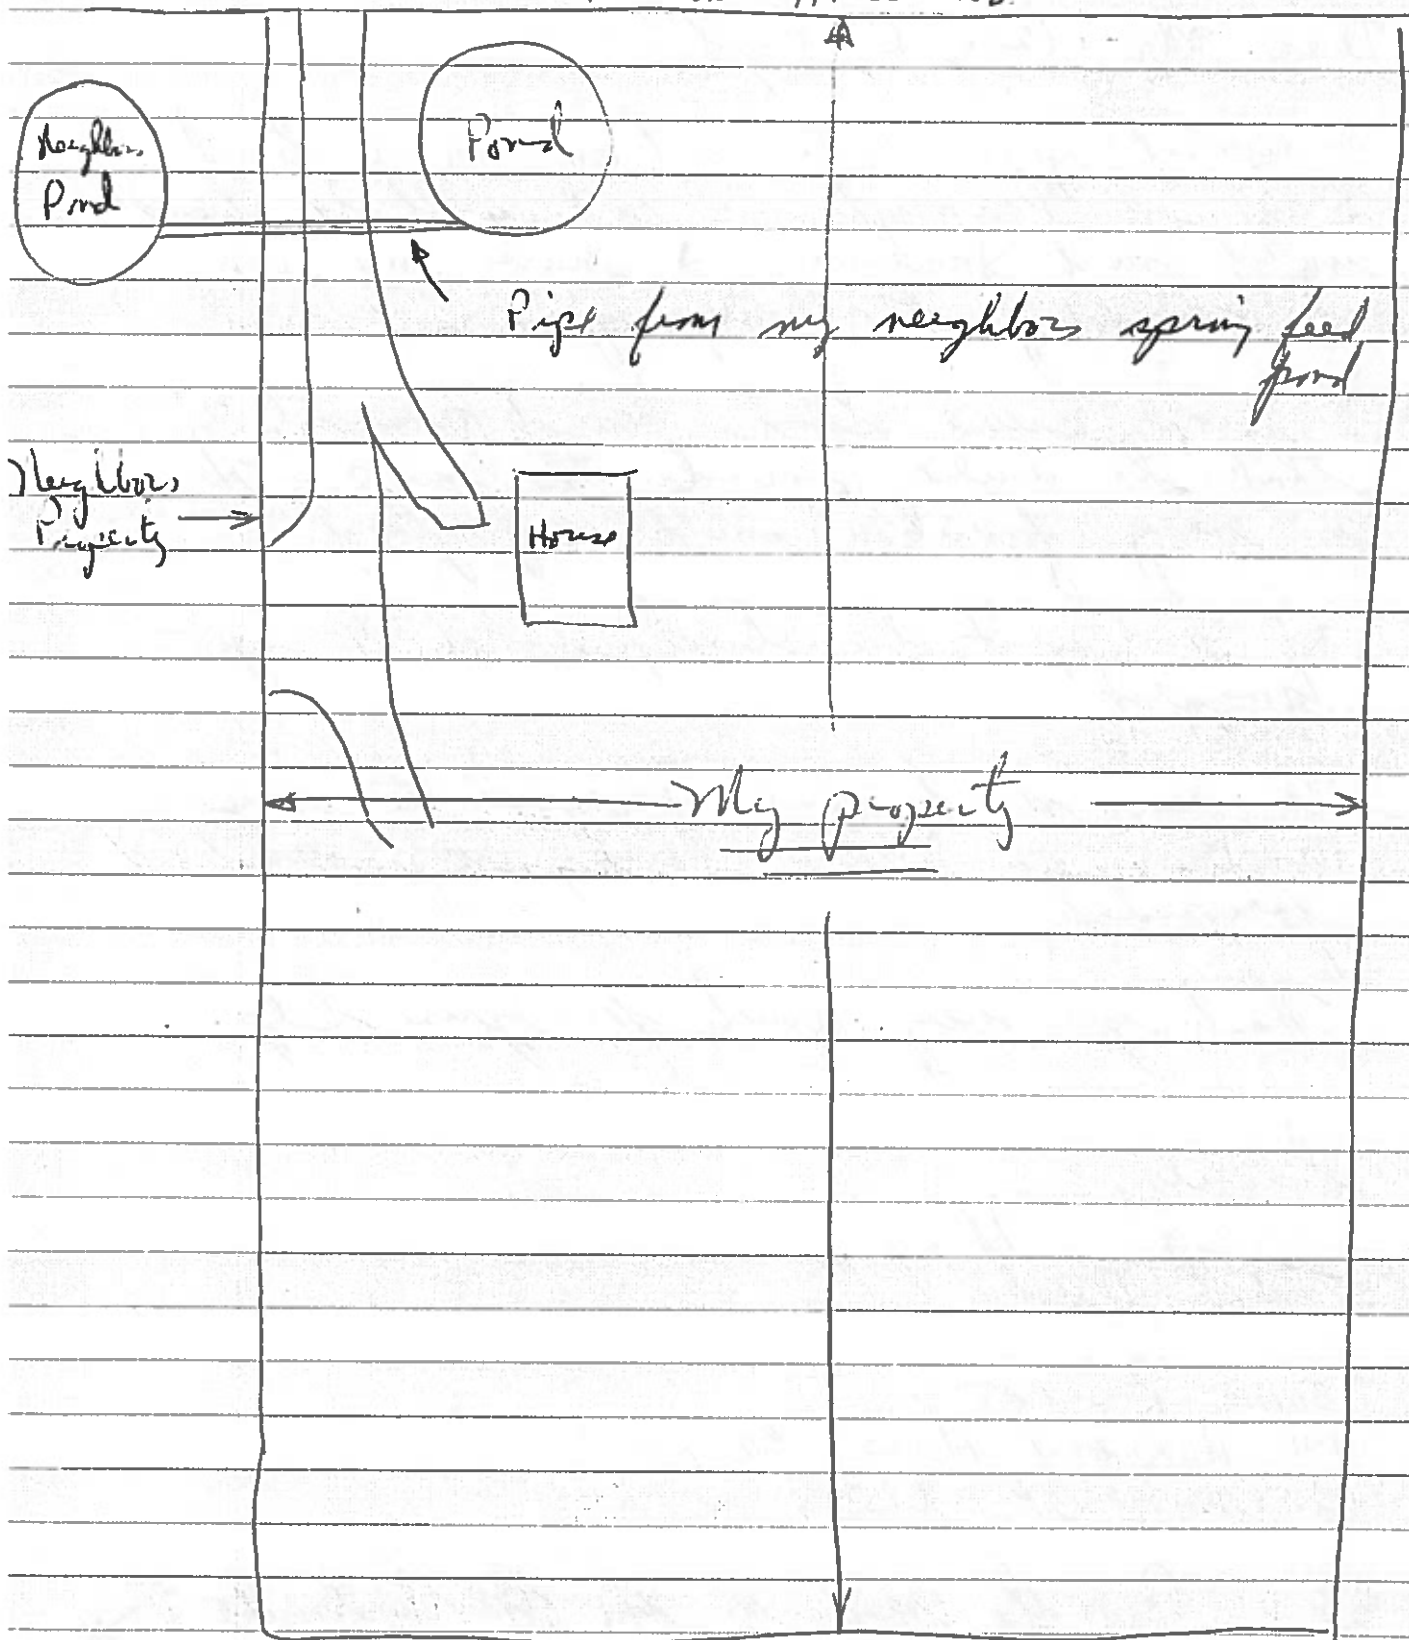 Neighbors
Pond
Pond
Pipe from my neighbors spring feed
pond
Neighbors
Property
House
My property